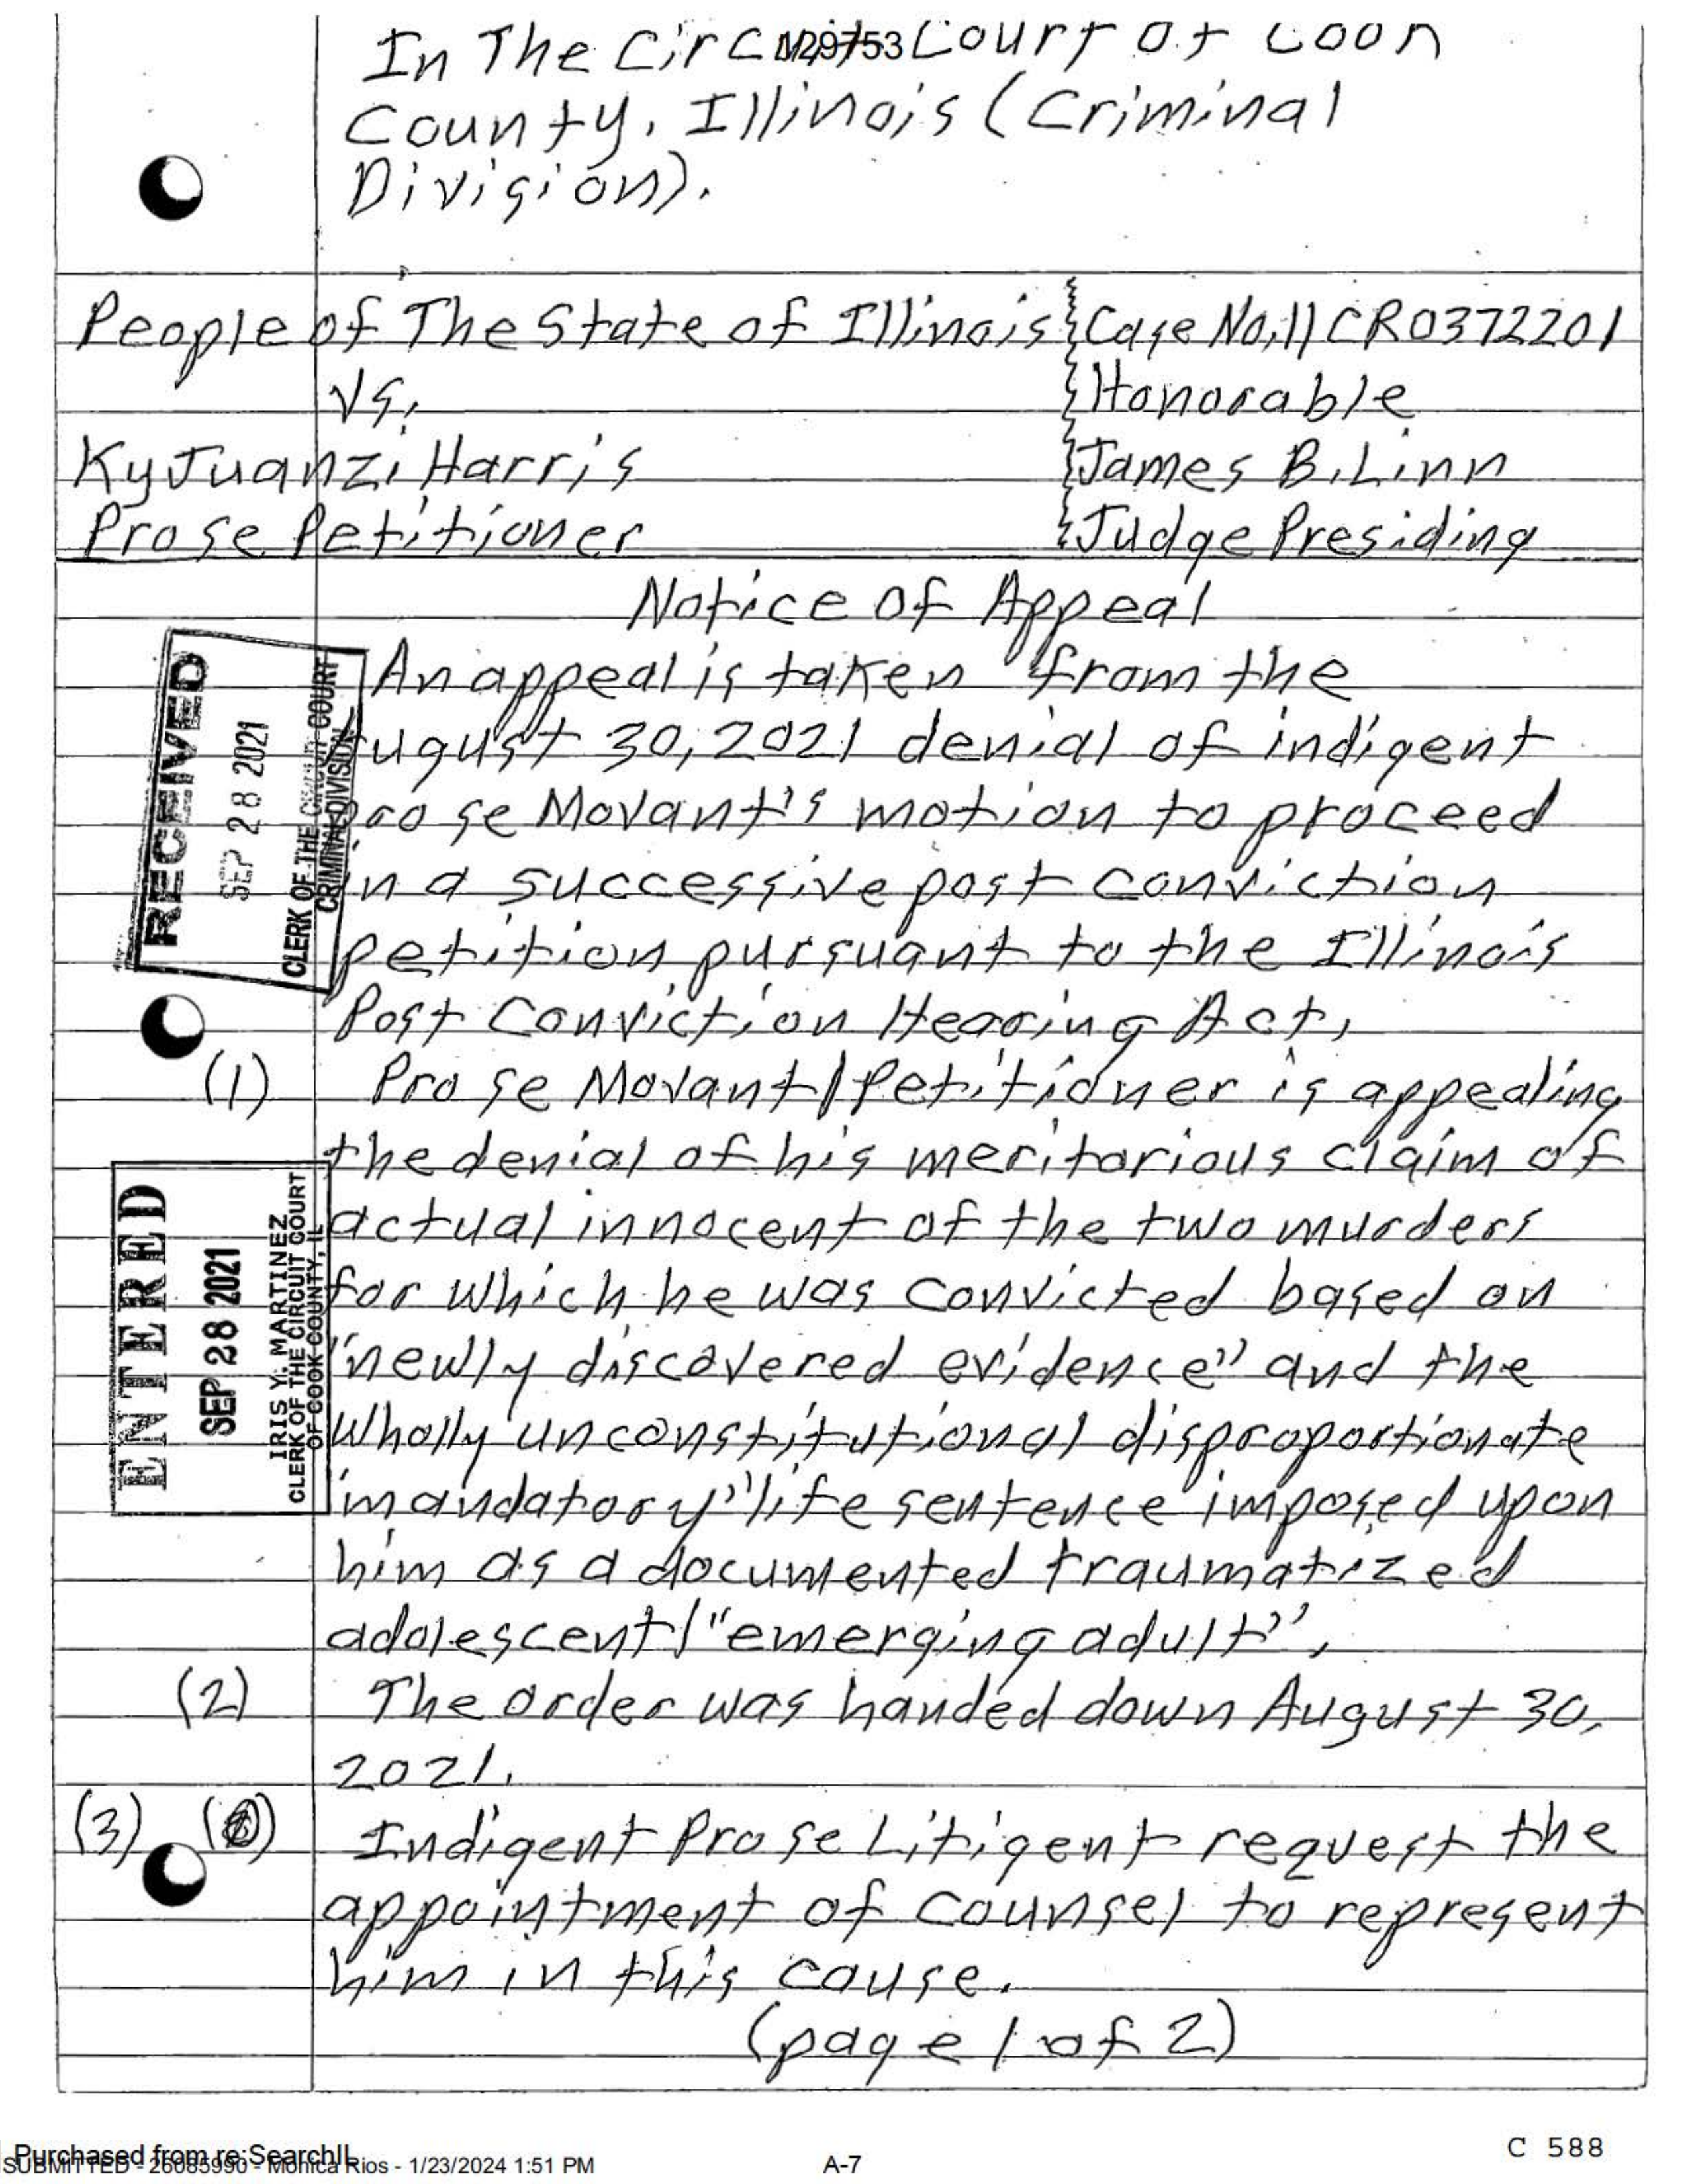 129753
In The Circuit Court of Coon
County, Illinois (Criminal
Division).
People of The State of Illinois Case No. 11CR0372201
vs. Honorable
KyJuanzi Harris James B. Linn
Pro se Petitioner Judge Presiding
Notice Of Appeal
RECEIVED
SEP 28 2021
CLERK OF THE CIRCUIT COURT
CRIMINAL DIVISION
An appeal is taken from the
August 30, 2021 denial of indigent
pro se Movant's motion to proceed
in a successive post conviction
petition pursuant to the Illinois
Post Conviction Hearing Act,
(1) Pro se Movant/Petitioner is appealing
the denial of his meritorious claim of
actual innocent of the two murders
for which he was convicted based on
"newly discovered evidence" and the
wholly unconstitutional disproportionate
"mandatory" life sentence imposed upon
him as a documented traumatized
adolescent/"emerging adult",
ENTERED
SEP 28 2021
IRIS Y. MARTINEZ
CLERK OF THE CIRCUIT COURT
OF COOK COUNTY, IL
(2) The order was handed down August 30,
2021.
(3) Indigent Pro se Litigent request the
appointment of counsel to represent
him in this cause.
(page 1 of 2)
C 588
Purchased from re:SearchIL
SUBMITTED - 26085990 - Monica Rios - 1/23/2024 1:51 PM
A-7